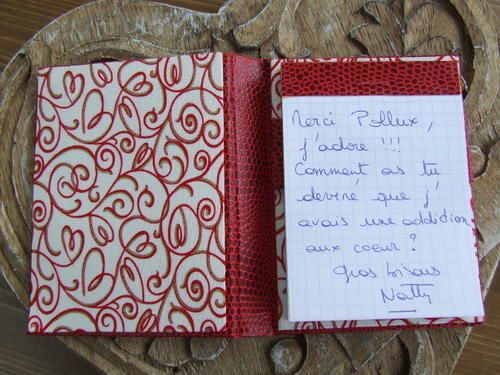 Merci Pollux,
j'adore !!!
Comment as tu
deviné que j'
avais une addidion
aux coeur ?
Gros bisous
Natty